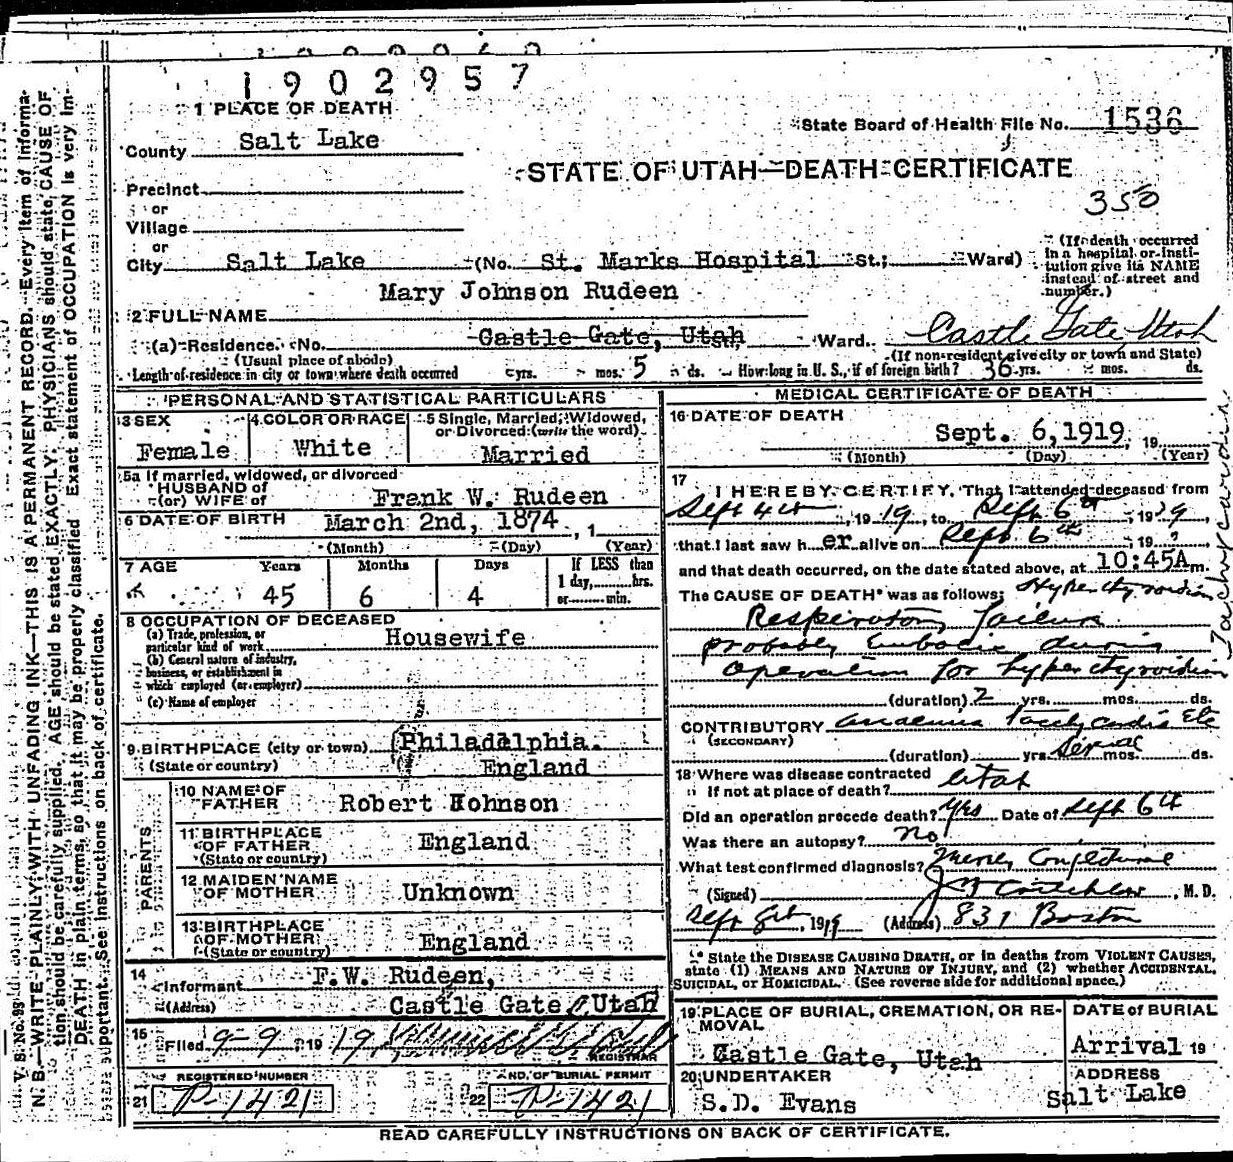 1902957
1 PLACE OF DEATH
State Board of Health File No. 1536
County Salt Lake
STATE OF UTAH—DEATH CERTIFICATE
Precinct
or
350
Village
or
City Salt Lake (No. St. Marks Hospital St.; Ward)
(If death occurred in a hospital or insti-
tution give its NAME
instead of street and
number.)
Mary Johnson Rudeen
2 FULL NAME
(a) Residence. No. Castle Gate, Utah, Ward. Castle Gate, Utah
(Usual place of abode) (If non-resident give city or town and State)
Length of residence in city or town where death occurred yrs. mos. 5 ds. How long in U. S., if of foreign birth? 36 yrs. mos. ds.
PERSONAL AND STATISTICAL PARTICULARS
3 SEX Female
4 COLOR OR RACE White
5 Single, Married, Widowed,
or Divorced (write the word)
Married
5a If married, widowed, or divorced
HUSBAND of
(or) WIFE of Frank W. Rudeen
6 DATE OF BIRTH March 2nd, 1874, 1
(Month) (Day) (Year)
7 AGE Years Months Days If LESS than
1 day, hrs.
or min.
45 6 4
8 OCCUPATION OF DECEASED
(a) Trade, profession, or
particular kind of work Housewife
(b) General nature of industry,
business, or establishment in
which employed (or employer)
(c) Name of employer
9 BIRTHPLACE (city or town) Philadelphia.
(State or country) England
PARENTS
10 NAME OF
FATHER Robert Johnson
11 BIRTHPLACE
OF FATHER England
(State or country)
12 MAIDEN NAME
OF MOTHER Unknown
13 BIRTHPLACE
OF MOTHER England
(State or country)
14
Informant F.W. Rudeen,
(Address) Castle Gate, Utah
15
Filed 9-9, 1919
REGISTRAR
REGISTERED NUMBER
21 P-1421
AND. OF BURIAL PERMIT
22 P-1421
MEDICAL CERTIFICATE OF DEATH
16 DATE OF DEATH
Sept. 6, 1919, 19
(Month) (Day) (Year)
17 I HEREBY CERTIFY, That I attended deceased from
Sept 4th, 1919, to Sept 6th, 1919,
that I last saw her alive on Sept 6th, 19
and that death occurred, on the date stated above, at 10:45A m.
The CAUSE OF DEATH* was as follows: Hyperthyroidism
Tachycardia
Respiratory failure
probably Embolic during
operation for hyperthyroidism
(duration) 2 yrs. mos. ds.
CONTRIBUTORY Tachycardia Etc
(SECONDARY)
(duration) yrs. mos. ds.
18 Where was disease contracted
if not at place of death? Utah
Did an operation precede death? Yes Date of Sept 6th
Was there an autopsy? No
What test confirmed diagnosis?
(Signed) , M. D.
1919 (Address) 831 Boston
* State the DISEASE CAUSING DEATH, or in deaths from VIOLENT CAUSES,
state (1) MEANS AND NATURE OF INJURY, and (2) whether ACCIDENTAL,
SUICIDAL, or HOMICIDAL. (See reverse side for additional space.)
19 PLACE OF BURIAL, CREMATION, OR RE-
MOVAL
Castle Gate, Utah
DATE of BURIAL
Arrival 19
20 UNDERTAKER
S.D. Evans
ADDRESS
Salt Lake
READ CAREFULLY INSTRUCTIONS ON BACK OF CERTIFICATE.
V. S. No. 99
N. B.—WRITE PLAINLY WITH UNFADING INK—THIS IS A PERMANENT RECORD. Every item of informa-
tion should be carefully supplied. AGE should be stated EXACTLY. PHYSICIANS should state CAUSE OF
DEATH in plain terms, so that it may be properly classified. Exact statement of OCCUPATION is very im-
portant. See instructions on back of certificate.